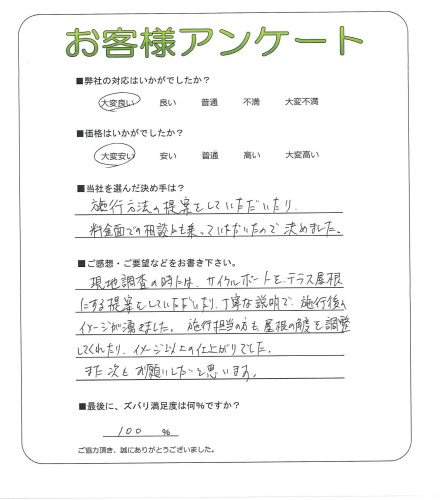 お客様アンケート
■弊社の対応はいかがでしたか？
大変良い 良い 普通 不満 大変不満
■価格はいかがでしたか？
大変安い 安い 普通 高い 大変高い
■当社を選んだ決め手は？
施行方法の提案をしていただいたり、
料金面での相談にも乗っていただいたので決めました。
■ご感想・ご要望などをお書き下さい。
現地調査の時には、サイクルポートを、テラス屋根
にする提案をしていただいたり、丁寧な説明で、施行後の
イメージが湧きました。施行担当の方も屋根の角度を調整
してくれたり、イメージ以上の仕上がりでした。
また次もお願いしたいと思います。
■最後に、ズバリ満足度は何％ですか？
100 %
ご協力頂き、誠にありがとうございました。